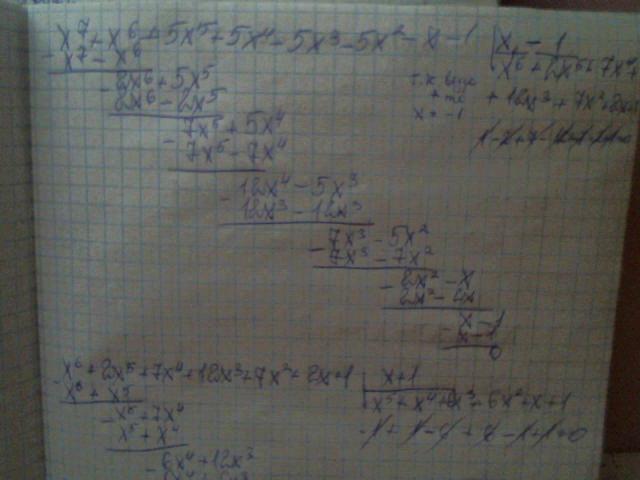 x⁷ + x⁶ + 5x⁵ + 5x⁴ - 5x³ - 5x² - x - 1 | x - 1
- x⁷ - x⁶ x⁶ + 2x⁵ + 7x⁴
- 2x⁶ + 5x⁵ + 12x³ + 7x² + 2x
2x⁶ - 2x⁵ x = -1
- 7x⁵ + 5x⁴
7x⁵ - 7x⁴
- 12x⁴ - 5x³
12x³ - 12x³
- 7x³ - 5x²
7x³ - 7x²
- 2x² - x
2x² - 2x
- x - 1
x - 1
0
x⁶ + 2x⁵ + 7x⁴ + 12x³ + 7x² + 2x + 1 | x + 1
- x⁶ + x⁵ x⁵ + x⁴ + 6x³ + 6x² + x + 1
- x⁵ + 7x⁴
x⁵ + x⁴
- 6x⁴ + 12x³